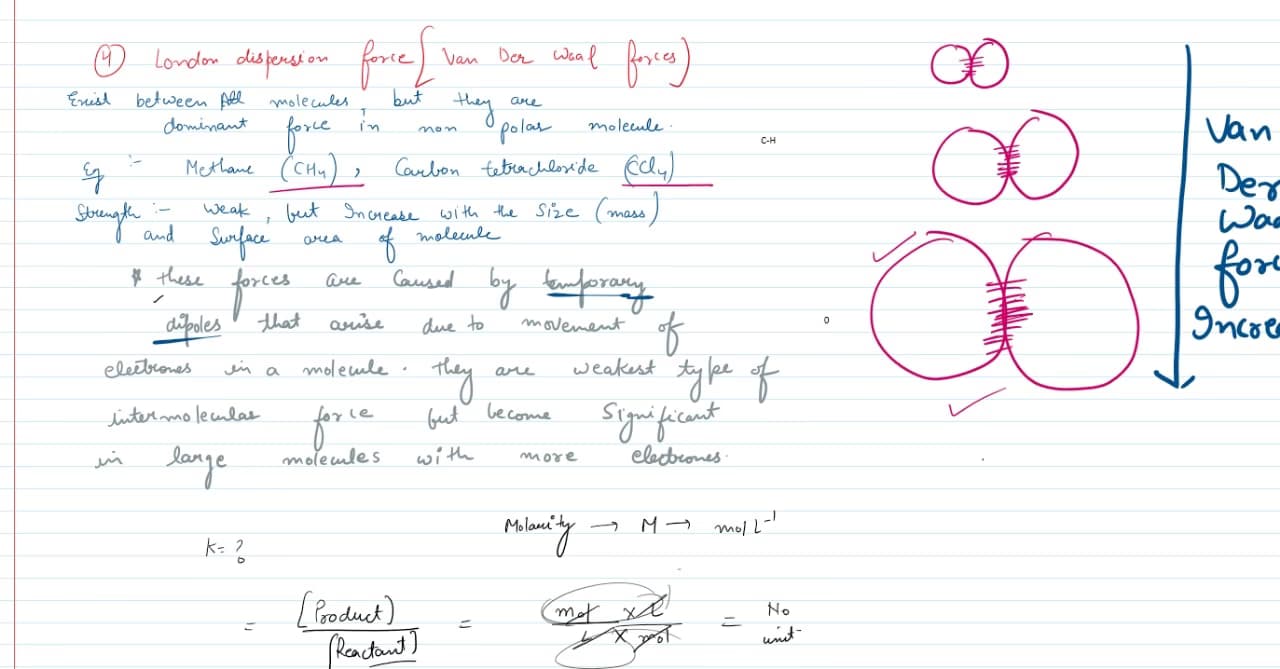 4 London dispersion force [Van Der Waal forces)
Exist between All molecules, but they are
dominant force in non polar molecule.
C-H
Eg :- Methane (CH4), Carbon tetrachloride (CCl4)
Strength :- Weak, but Increase with the Size (mass)
and Surface area of molecule
* these forces are Caused by temporary
dipoles that arise due to movement of
electrones in a molecule. they are weakest type of
intermolecular force but become Significant
in large molecules with more electrones.
Van
Der
Waa
forc
Incre
Molarity → M → mol L-1
K= ?
= [Product] / [Reactant] = mol x L / L x mol = No unit